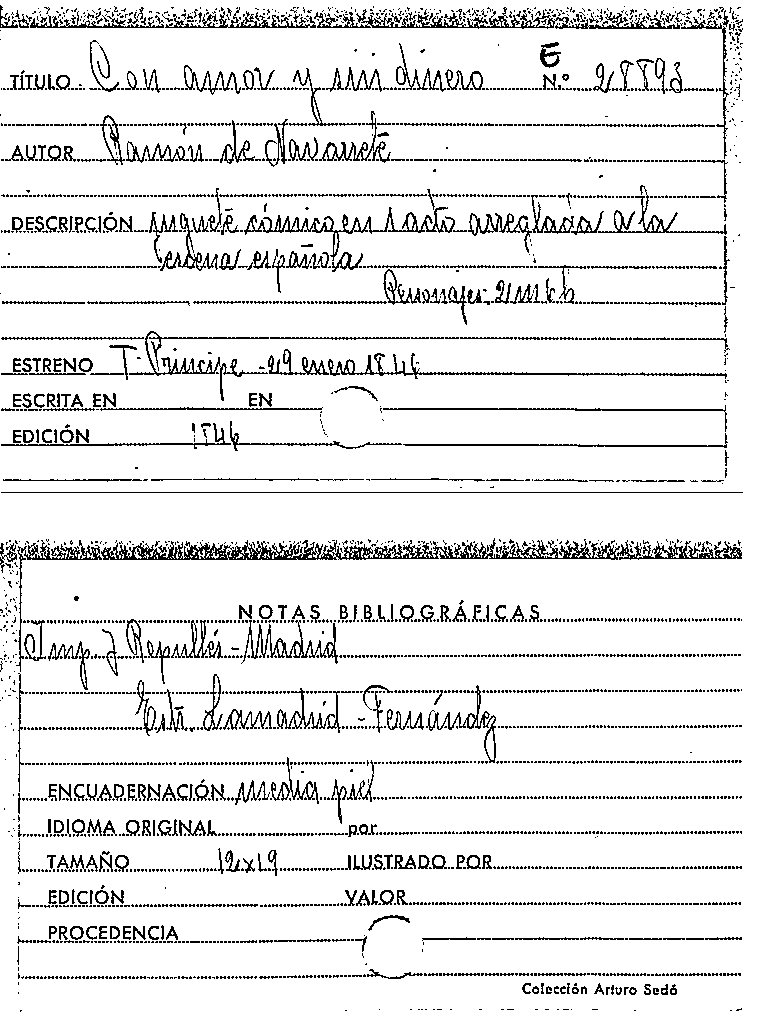 TÍTULO Con amor y sin dinero E N.º 28893
AUTOR Ramón de Navarrete
DESCRIPCIÓN juguete cómico en 1 acto arreglada a la
escena española
Personajes
ESTRENO T. Príncipe - 29 enero 1846
ESCRITA EN EN
EDICIÓN 1846
NOTAS BIBLIOGRÁFICAS
Imp. J Repullés - Madrid
Estr. Lamadrid - Fernández
ENCUADERNACIÓN media piel
IDIOMA ORIGINAL por
TAMAÑO 12x19 ILUSTRADO POR
EDICIÓN VALOR
PROCEDENCIA
Colección Arturo Sedó